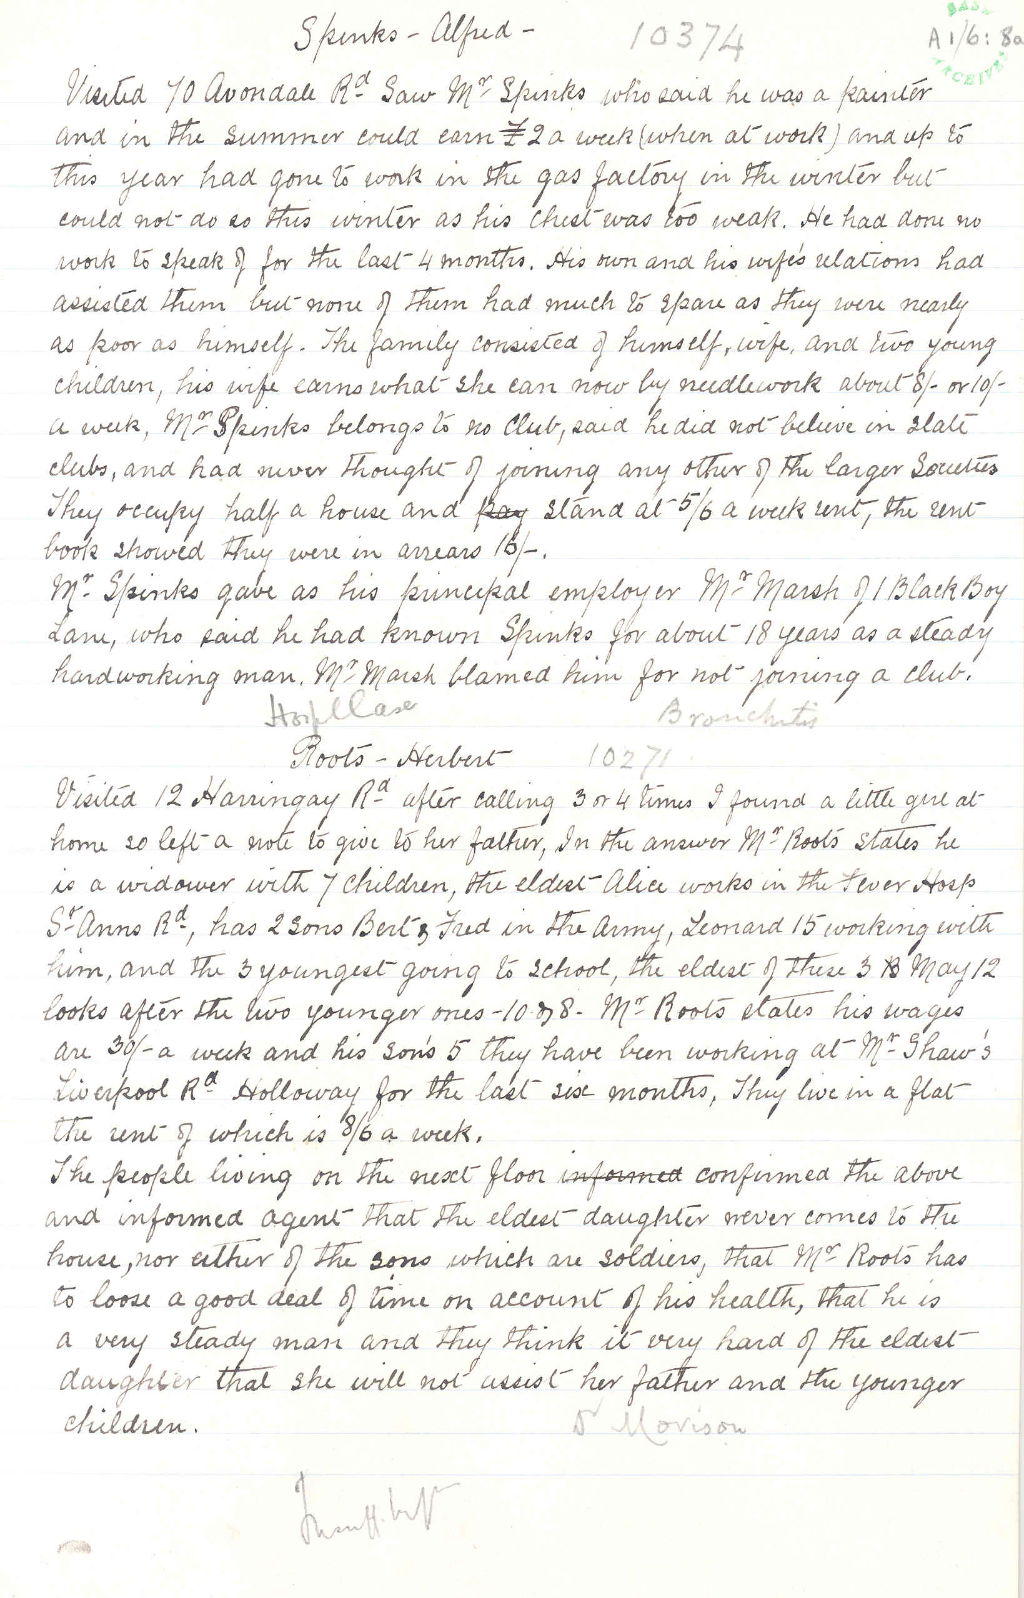 Spinks - Alfred -
10374
BASW
A 1/6: 8a
ARCHIVES
Visited 70 Avondale Rd Saw Mr Spinks who said he was a painter
and in the summer could earn £2 a week (when at work) and up to
this year had gone to work in the gas factory in the winter but
could not do so this winter as his chest was too weak. He had done no
work to speak of for the last 4 months. His own and his wife's relations had
assisted them but none of them had much to spare as they were nearly
as poor as himself. The family consisted of himself, wife, and two young
children, his wife earns what she can now by needlework about 8/- or 10/-
a week, Mr Spinks belongs to no Club, said he did not believe in slate
clubs, and had never thought of joining any other of the larger Societies
They occupy half a house and pay stand at 5/6 a week rent, the rent
book showed they were in arrears 16/-.
Mr Spinks gave as his principal employer Mr Marsh of 1 Black Boy
Lane, who said he had known Spinks for about 18 years as a steady
hardworking man. Mr Marsh blamed him for not joining a club.
Hospl Case
Bronchitis
Roots - Herbert
10271
Visited 12 Harringay Rd after calling 3 or 4 times I found a little girl at
home so left a note to give to her father, In the answer Mr Roots states he
is a widower with 7 children, the eldest Alice works in the Fever Hosp
St Anns Rd, has 2 sons Bert & Fred in the Army, Leonard 15 working with
him, and the 3 youngest going to school, the eldest of these 3 May 12
looks after the two younger ones - 10 & 8 - Mr Roots states his wages
are 30/- a week and his son's 5 they have been working at Mr Shaw's
Liverpool Rd Holloway for the last six months, They live in a flat
the rent of which is 8/6 a week.
The people living on the next floor informed confirmed the above
and informed agent that the eldest daughter never comes to the
house, nor either of the sons which are soldiers, that Mr Roots has
to loose a good deal of time on account of his health, that he is
a very steady man and they think it very hard of the eldest
daughter that she will not assist her father and the younger
children.
Dr Morison